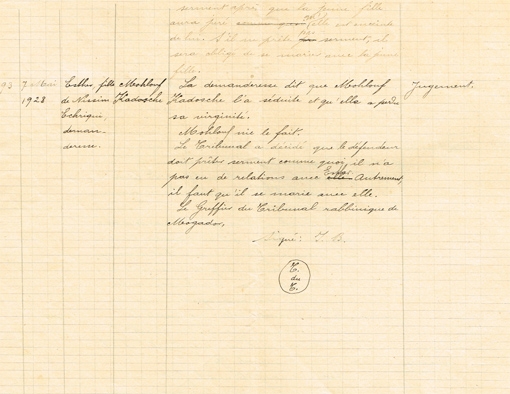 serment après que la jeune fille
aura juré qu'elle est enceinte
de lui. S'il ne prête pas serment, il
sera obligé de se marier avec la jeune
fille.
93 7 Mai 1928
Esther, fille de Nissim Echriqui, demanderesse.
Mokhlouf Kadosche
La demanderesse dit que Mokhlouf
Kadosche l'a séduite et qu'elle a perdu
sa virginité.
Mokhlouf nie le fait.
Le Tribunal a décidé que le défendeur
doit prêter serment comme quoi, il n'a
pas eu de relations avec elle Autrement,
il faut qu'il se marie avec elle.
Le Greffier du Tribunal rabbinique de
Mogador,
Signé: J. B.
Jugement.
T.
du
T.